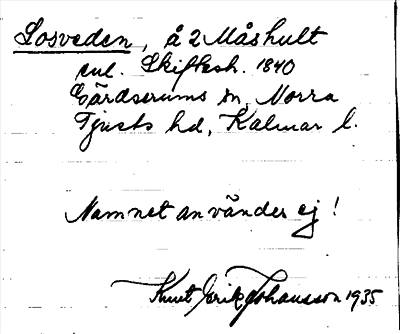 Losveden, å 2 Måshult
enl. Skifteh. 1840
Gärdserums sn, Norra
Tjusts hd, Kalmar l.
Namnet användes ej!
Knut Erik Johansson 1935